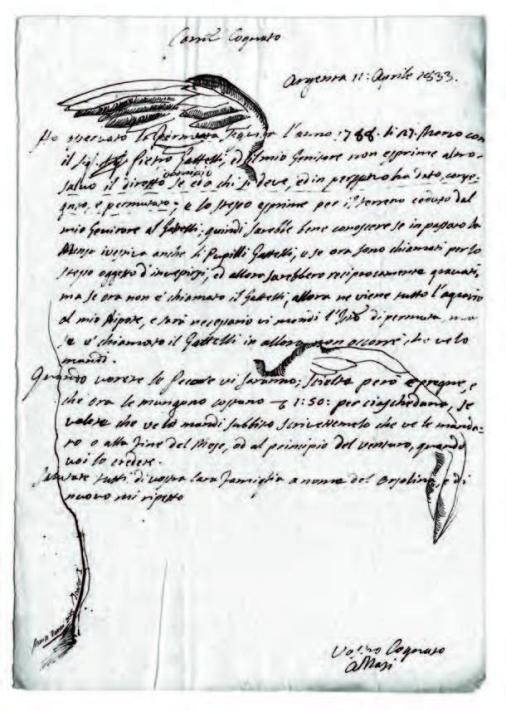 Car.mo Cognato
Argenta 11: Aprile 1833.
Ho osservato la Permuta seguita l'anno 1788. li 27. Marzo con
il Sig. Pietro Gattelli, ed il mio Genitore non esprime altro
salvo il diretto dominio se era chi si deve, ed in perpetuo ha dato,
e permutato e lo stesso esprime per il terreno ceduto dal
mio Genitore al Gattelli; quindi sarebbe bene conoscere se in passato la
investiva anche li Pupilli Gattelli, o se ora sono chiamati per lo
stesso oggetto d'investirsi, ed allora sarebbero reciprocamente gravati,
ma se ora non è chiamato il Gattelli, allora ne viene tutto l'aggravio
al mio Nipote, e sarà necessario vi mandi l' di permuta, ma
se è chiamato il Gattelli in allora non occorre che ve lo
mandi.
Quando vorete le Pecore vi saranno, scielte però e pregne, e
che ora le mungono costano 1:50: per ciascheduna, se
volete che ve le mandi subbito scrivettemelo che ve le mande-
rò o alla fine del Mese, od al principio del venturo, quando
voi lo credete.
Salutate tutti di vostra cara famiglia a nome del Orsolina, e di
nuovo mi ripetto
Vostro Cognato
A Masi